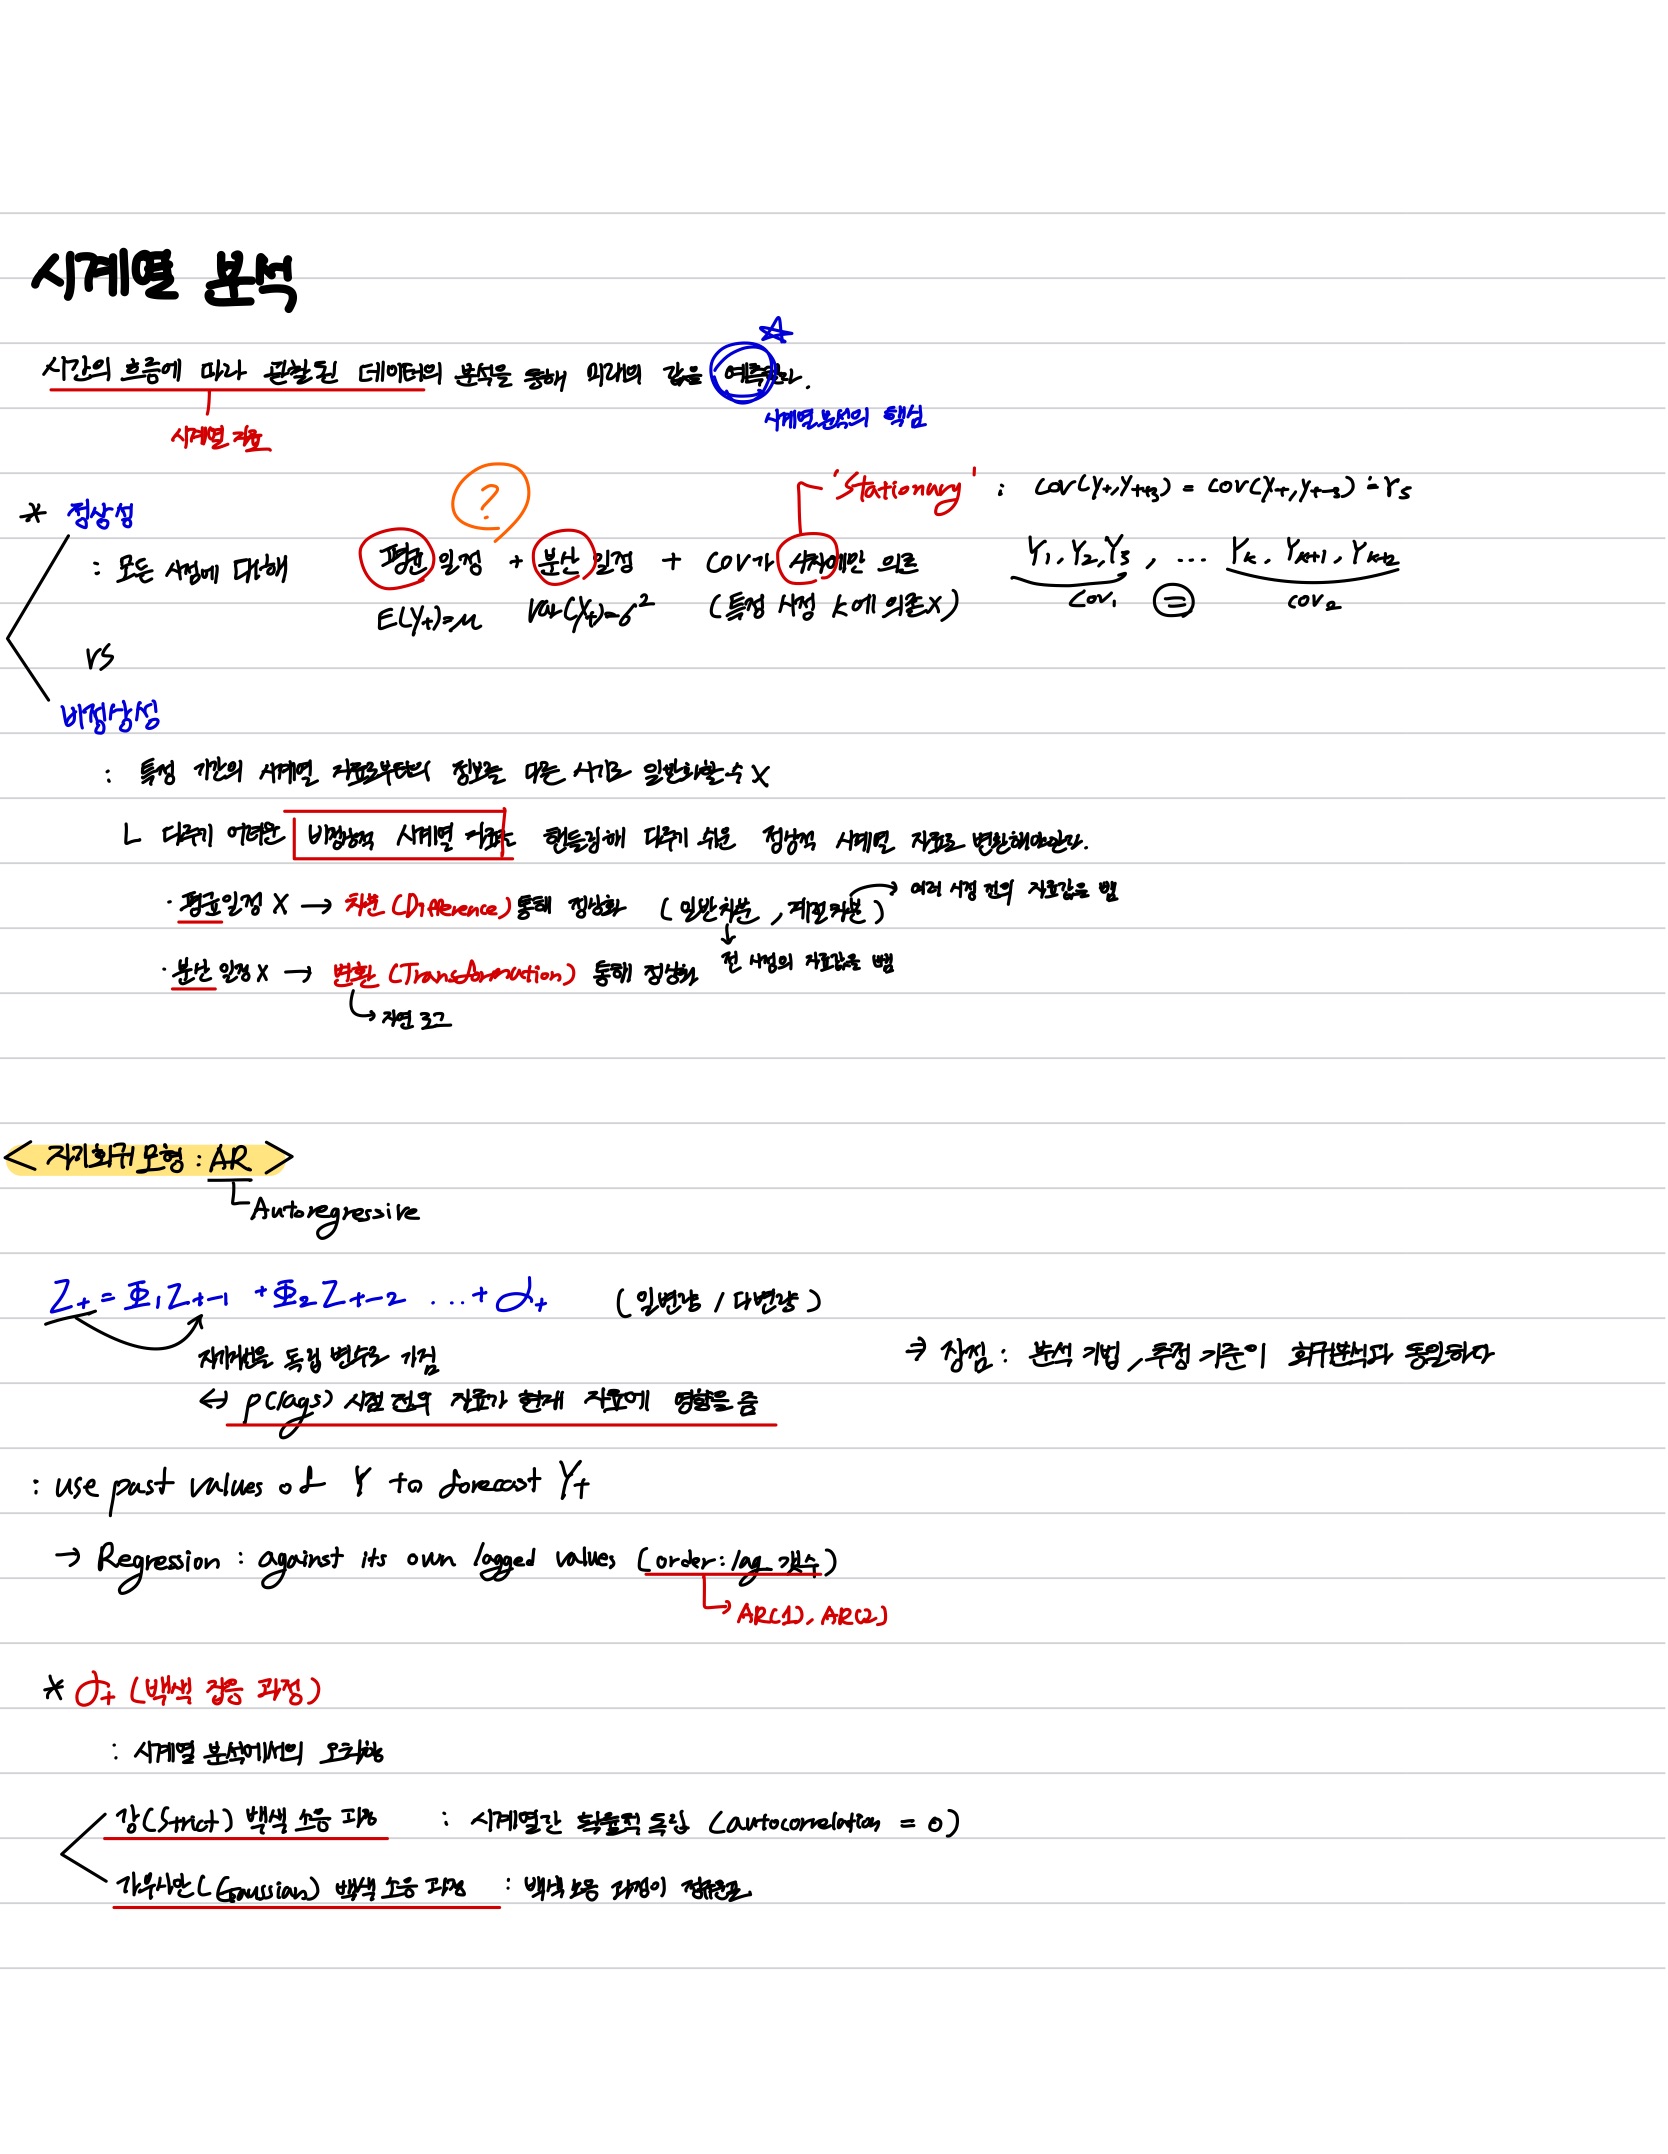 시계열 분석
시간의 흐름에 따라 관찰된 데이터의 분석을 통해 미래의 값을 예측한다.
시계열 자료
시계열분석의 핵심
'Stationary' : cov(Yt, Yt+s) = cov(Yt, Yt-s) = rs
* 정상성
?
: 모든 시점에 대해 평균 일정 + 분산 일정 + cov가 시차에만 의존
Y1, Y2, Y3, ... Yk, Yk+1, Yk+2
E(Yt)=μ Var(Yt)=σ² (특정 시점 k에 의존X)
cov1 = cov2
vs
비정상성
: 특정 기간의 시계열 자료로부터의 정보를 다른 시기로 일반화할 수 X
ㄴ 다루기 어려운 비정상적 시계열 자료는 핸들링해 다루기 쉬운 정상적 시계열 자료로 변환해야한다.
· 평균일정 X → 차분 (Difference) 통해 정상화 (일반차분, 계절차분) → 여러 시점 전의 자료값을 뺌
전 시점의 자료값을 뺌
· 분산 일정 X → 변환 (Transformation) 통해 정상화
↳ 자연 로그
< 자기회귀모형 : AR >
Autoregressive
Zt = Φ1Zt-1 + Φ2Zt-2 ... + αt (일변량 / 다변량)
자기자신을 독립 변수로 가짐
⇒ 장점 : 분석 기법, 추정 기준이 회귀분석과 동일하다
↔ p(lags) 시점 전의 자료가 현재 자료에 영향을 줌
: use past values of Y to forecast Yt
→ Regression : against its own lagged values (order : lag 갯수)
→ AR(1), AR(2)
* αt (백색 잡음 과정)
: 시계열 분석에서의 오차항
강(Strict) 백색 소음 과정 : 시계열간 확률적 독립 (autocorrelation = 0)
가우시안(Gaussian) 백색 소음 과정 : 백색 소음 과정이 정규분포